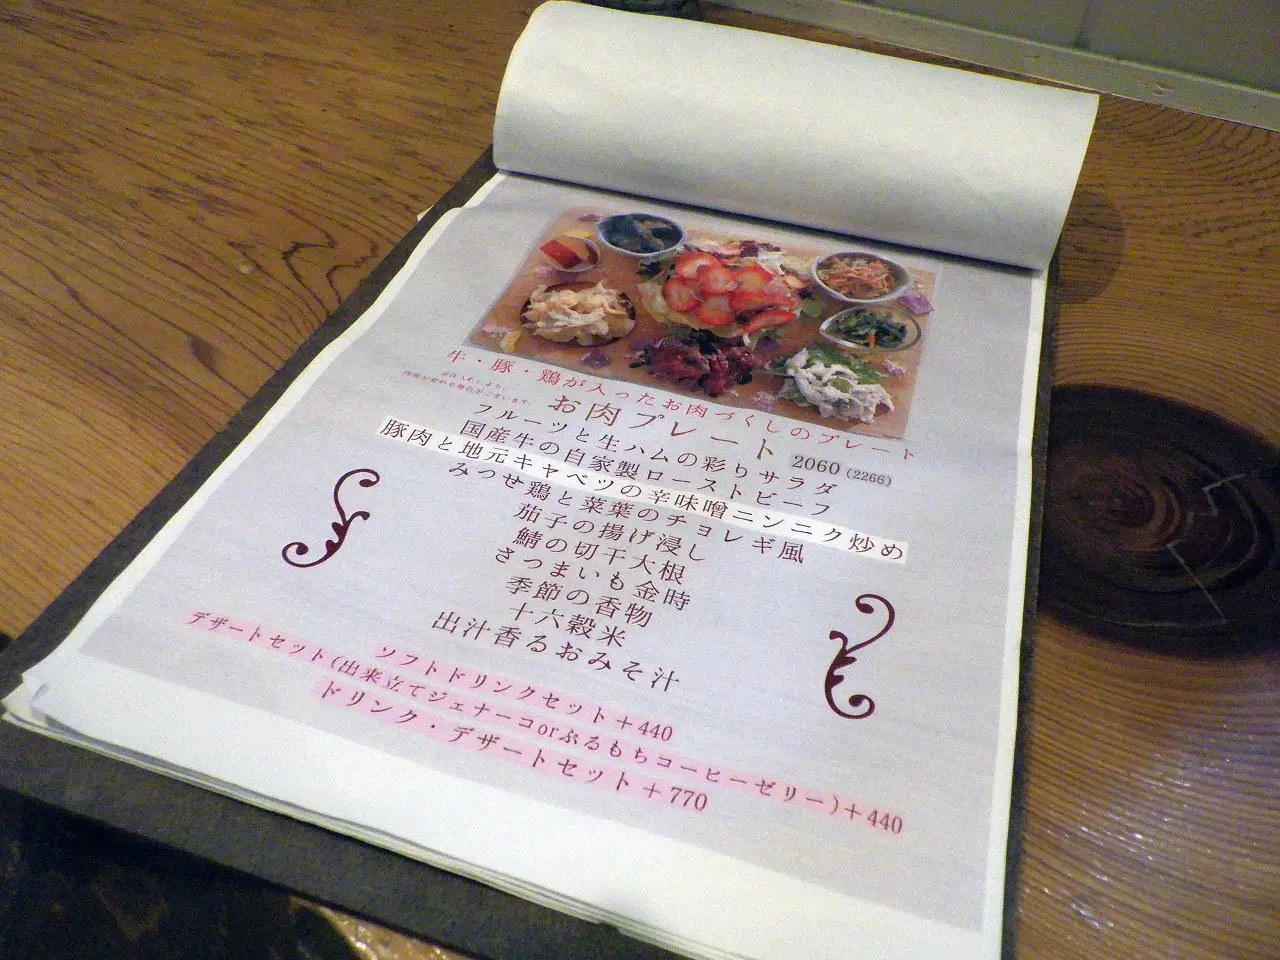 牛・豚・鶏が入ったお肉づくしのプレート
お肉プレート 2060（2266）
フルーツと生ハムの彩りサラダ
国産牛の自家製ローストビーフ
豚肉と地元キャベツの辛味噌ニンニク炒め
みつせ鶏と菜葉のチョレギ風
茄子の揚げ浸し
鯖の切干大根
さつまいも金時
季節の香物
十六穀米
出汁香るおみそ汁
ソフトドリンクセット＋440
デザートセット（出来立てジェナーコorぷるもちコーヒーゼリー）＋440
ドリンク・デザートセット＋770